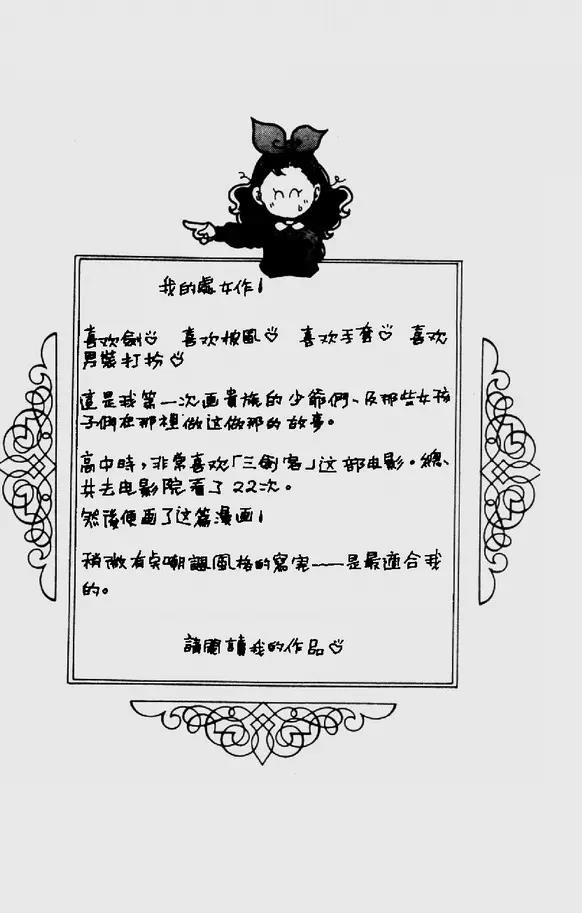 我的處女作!
喜欢劍♡ 喜欢披風♡ 喜欢手套♡ 喜欢
男裝打扮♡
這是我第一次画貴族的少爺們、及那些女孩
子們在那裡做这做那的故事。
高中時,非常喜欢「三劍客」这部电影。總
共去电影院看了22次。
然後便画了这篇漫画!
稍微有点嘲諷風格的寫実——是最適合我
的。
請閱讀我的作品♡